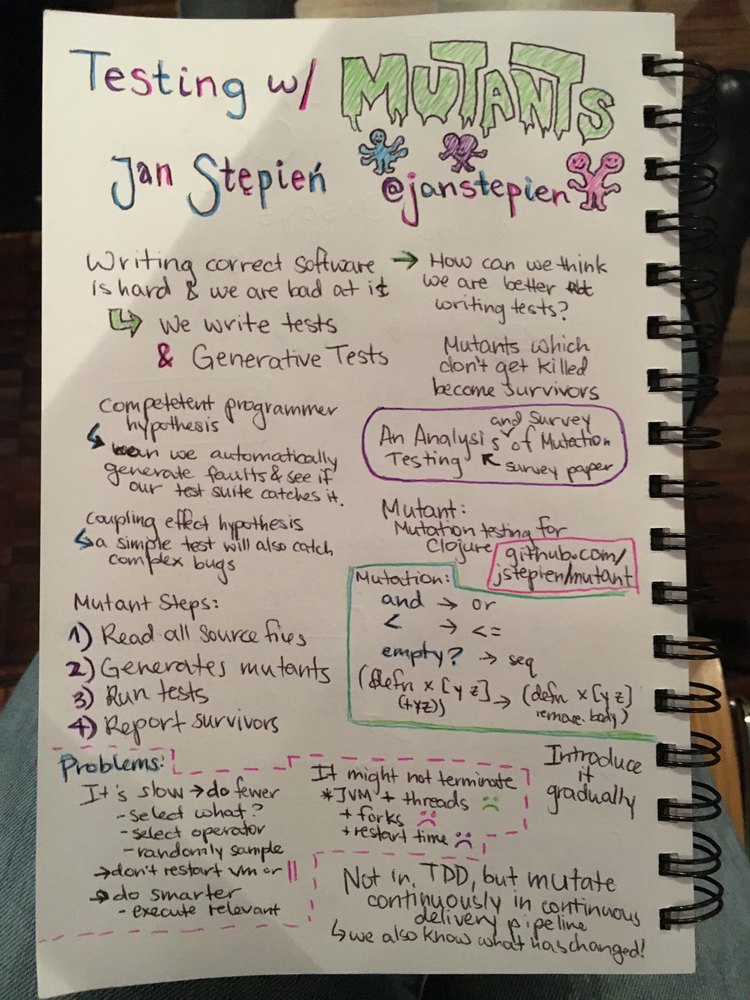 Testing w/ MUTANTS
Jan Stępień @janstepien
Writing correct software
is hard & we are bad at it
→ How can we think
we are better at
writing tests?
↳ we write tests
& Generative Tests
Mutants which
don't get killed
become survivors
Competetent programmer
hypothesis
↳ can we automatically
generate faults & see if
our test suite catches it.
An Analysis and survey of Mutation
Testing ↖ survey paper
coupling effect hypothesis
↳ a simple test will also catch
complex bugs
Mutant:
Mutation testing for
Clojure
github.com/
jstepien/mutant
Mutant Steps:
1) Read all source files
2) Generates mutants
3) Run tests
4) Report survivors
Mutation:
and → or
< → <=
empty? → seq
(defn x [y z] → (defn x [y z]
(+yz)) remove.body)
Problems:
It's slow → do fewer
- select what?
- select operator
- randomly sample
→ don't restart vm or ||
→ do smarter
- execute relevant
It might not terminate
* JVM + threads
+ forks
+ restart time
Introduce
it
gradually
Not in TDD, but mutate
continuously in continuous
delivery pipeline
↳ we also know what has changed!